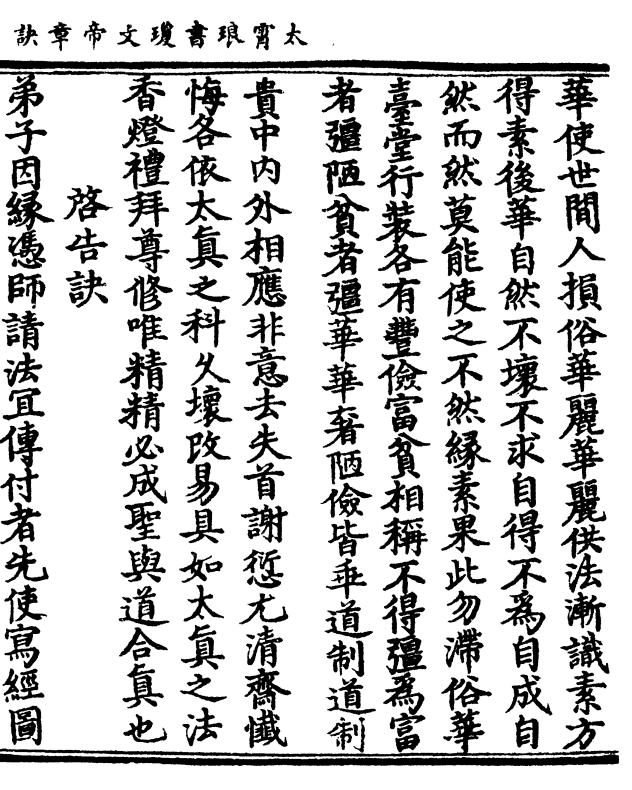 太霄琅書瓊文帝章訣
華使世間人損俗華麗華麗供法漸識素方
得素後華自然不壞不求自得不為自成自
然而然莫能使之不然緣素果此勿滯俗華
臺堂行裝各有豐儉富貧相稱不得彊為富
者彊陋貧者彊華華奢陋儉皆乖道制道制
貴中內外相應非意去失首謝愆尤清齋懺
悔各依太眞之科久壞改易具如太眞之法
香燈禮拜尊修唯精精必成聖與道合眞也
啓告訣
弟子因緣憑師請法冝傳付者先使寫經圖